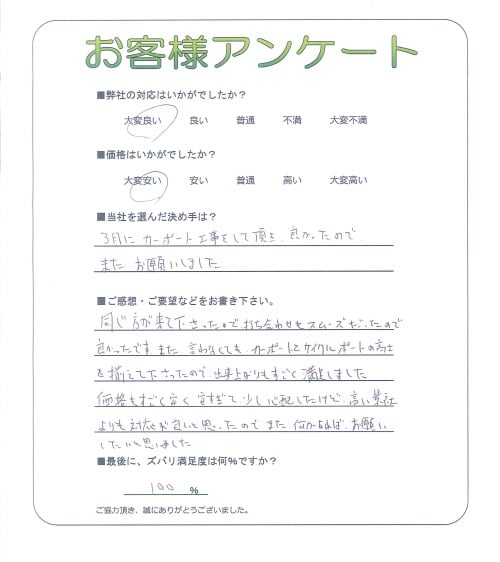 お客様アンケート
■弊社の対応はいかがでしたか？
大変良い 良い 普通 不満 大変不満
■価格はいかがでしたか？
大変安い 安い 普通 高い 大変高い
■当社を選んだ決め手は？
3月に カーポート工事をして頂き、良かったので
また お願いしました
■ご感想・ご要望などをお書き下さい。
同じ方が来て下さったので打ち合わせもスムーズだったので
良かったです。また、言わなくても、カーポートとサイクルポートの高さ
を揃えて下さったので、出来上がりもすごく満足しました
価格もすごく安く 安すぎて少し心配したけど、高い業社
よりも対応が良いと思ったので また 何かあれば、お願い
したいと思いました
■最後に、ズバリ満足度は何％ですか？
100 %
ご協力頂き、誠にありがとうございました。